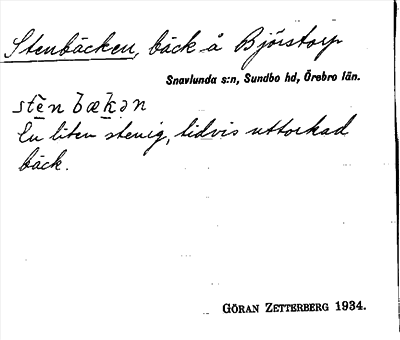 Stenbäcken, bäck å Björstorp
Snavlunda s:n, Sundbo hd, Örebro län.
stè̱n bæḵən
En liten stenig, tidvis uttorkad
bäck.
GÖRAN ZETTERBERG 1934.